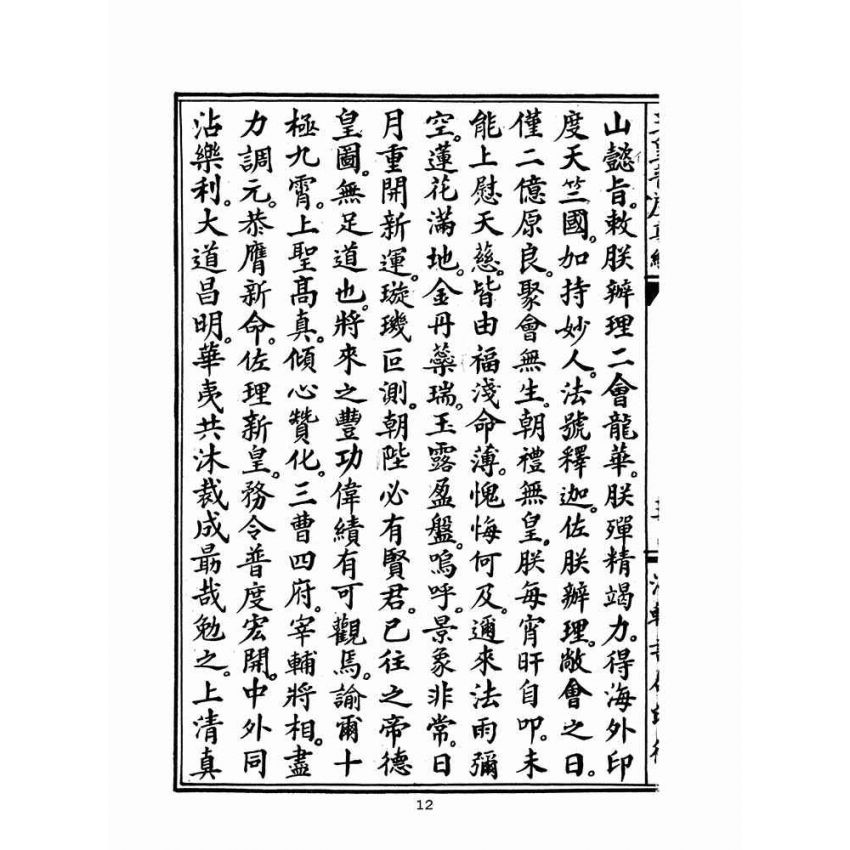 山懿旨。敕朕辦理二會龍華。朕殫精竭力。得海外印
度天竺國。加持妙人。法號釋迦。佐朕辦理。敞會之日。
僅二億原良。聚會無生。朝禮無皇。朕每宵旰自叩。未
能上慰天慈。皆由福淺命薄。愧悔何及。邇來法雨彌
空。蓮花滿地。金丹藥瑞。玉露盈盤。嗚呼。景象非常。日
月重開新運。璇璣叵測。朝陛必有賢君。已往之帝德
皇圖。無足道也。將來之豐功偉績有可觀焉。諭爾十
極九霄。上聖高真。傾心贊化。三曹四府。宰輔將相。盡
力調元。恭膺新命。佐理新皇。務令普度宏開。中外同
沾樂利。大道昌明。華夷共沐裁成。最哉勉之。上清真
12